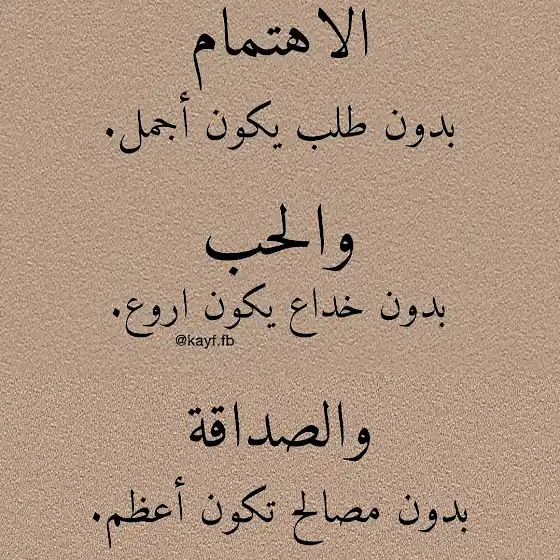 الاهتمام
بدون طلب يكون أجمل.
والحب
بدون خداع يكون اروع.
@kayf.fb
والصداقة
بدون مصالح تكون أعظم.